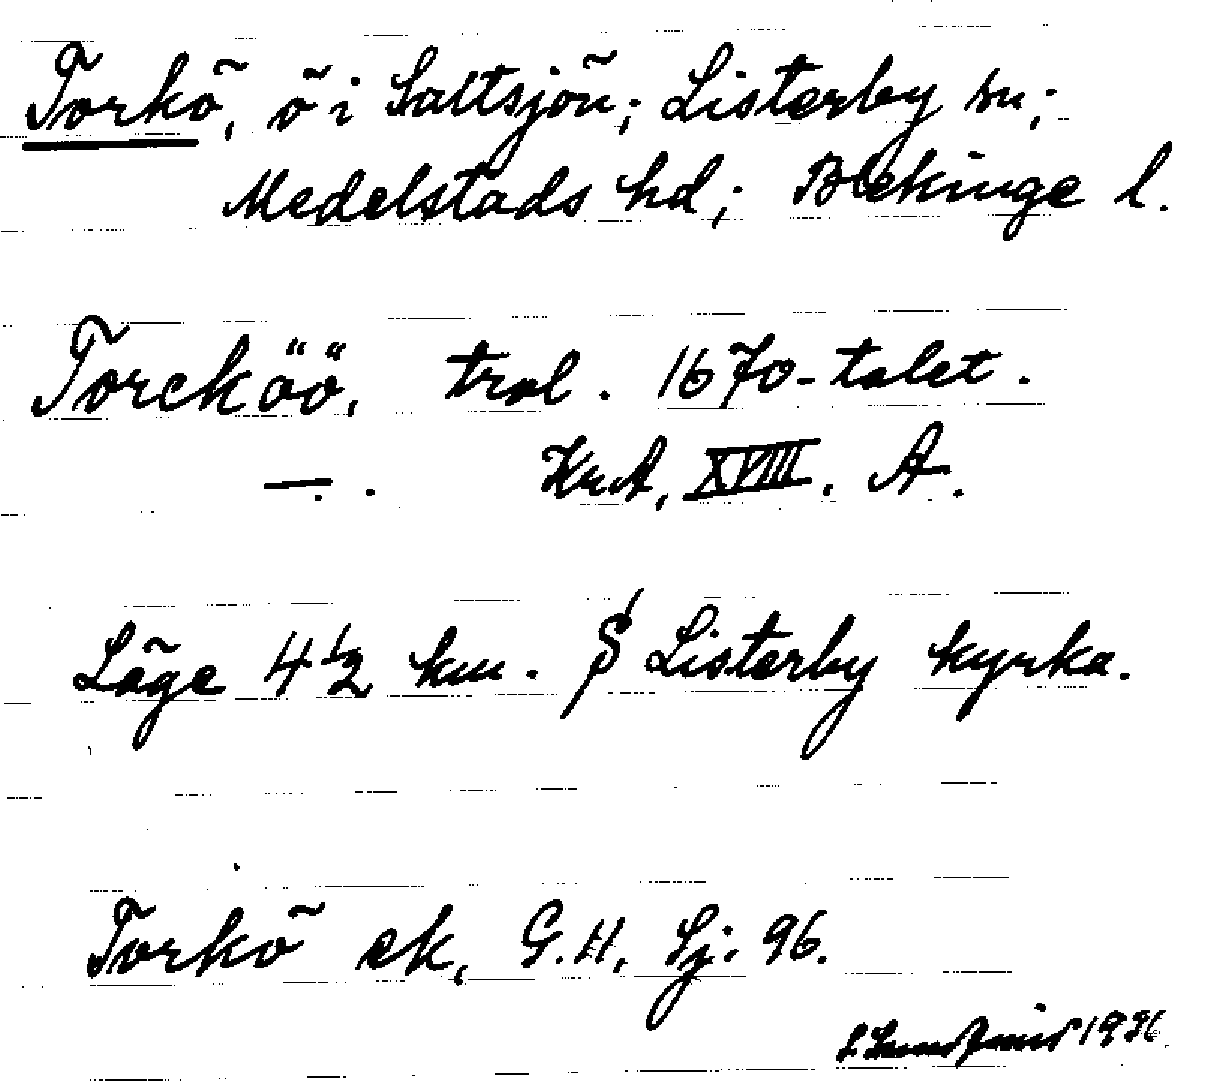 Torkö, ö i Saltsjön; Listerby sn;
Medelstads hd; Blekinge l.
Torcköö, trol. 1670-talet.
—. . KrA, XVIII. A.
Läge 4 1/2 km. S Listerby kyrka.
Torkö ek, G.H, Sj: 96.